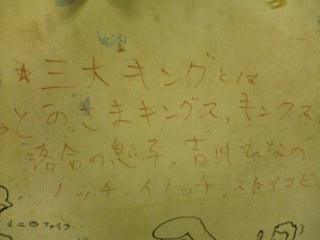 ★三大キングとは
とのさまキングス、キンクス
落合の息子。吉川ひなの
ノッチ、イノッチ、スタイコビ
ミニのファイク